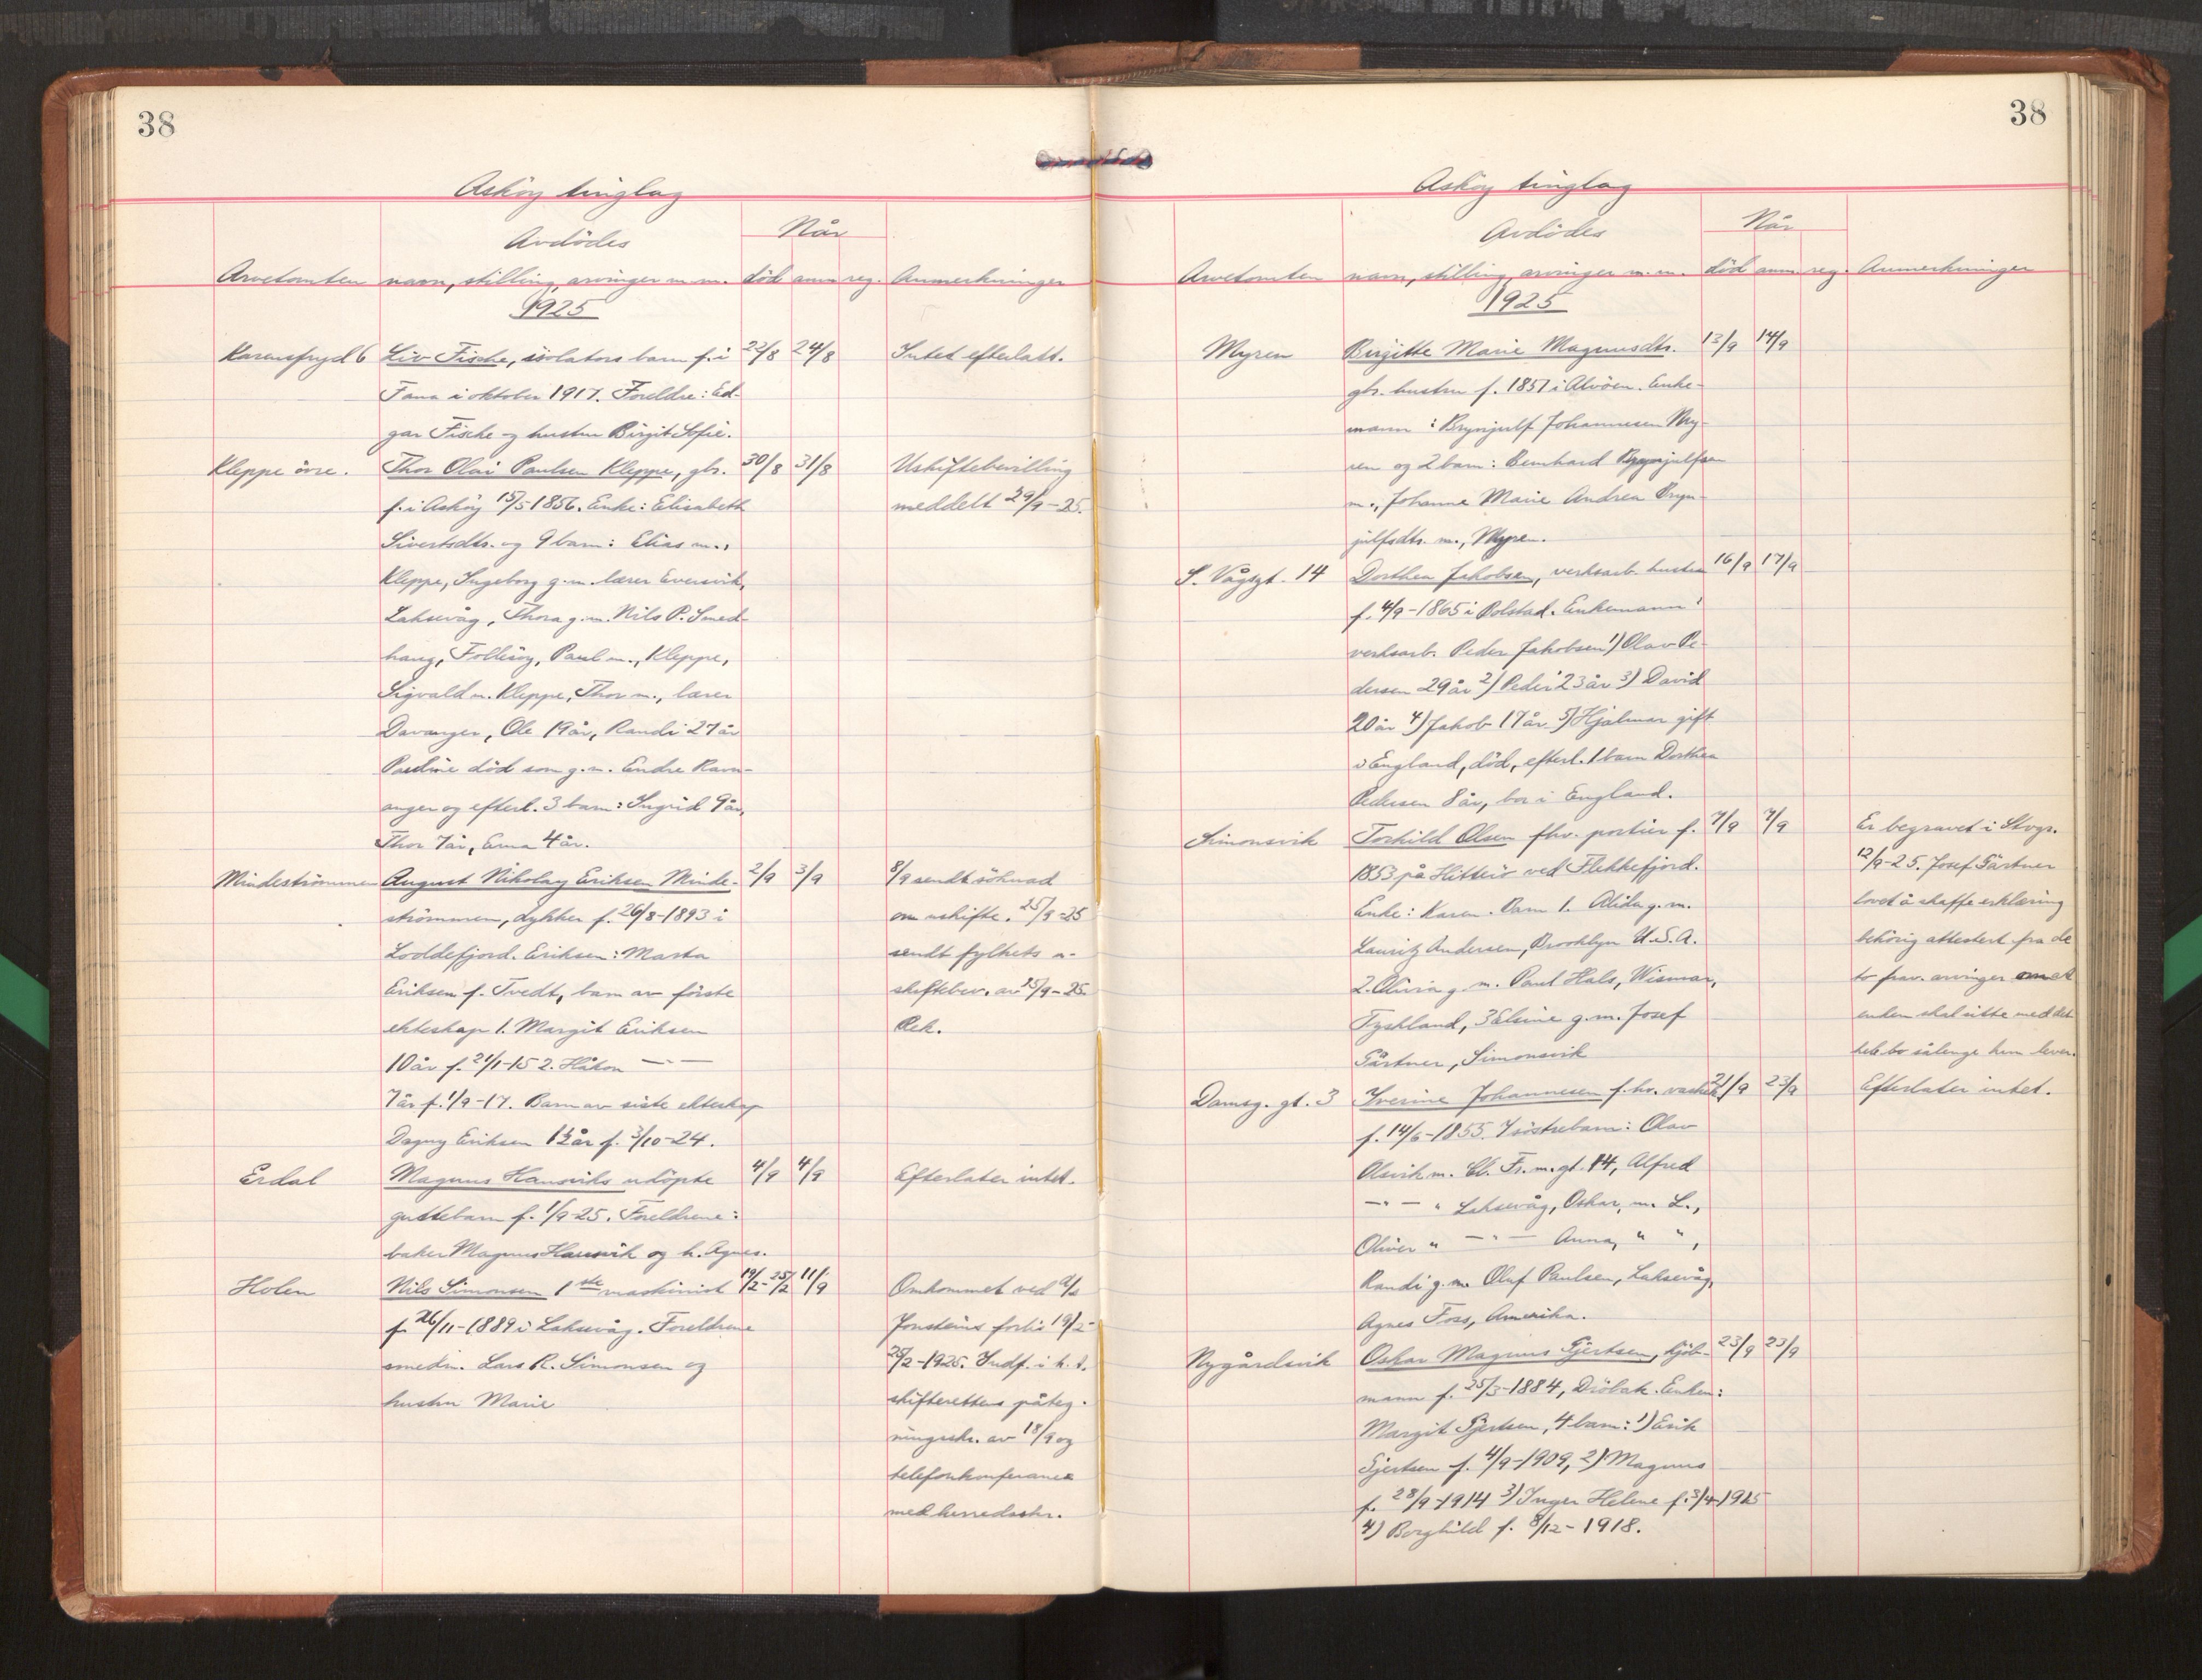 38
Askøy tinglag
Når
Avdødes
Arvetomten navn, stilling, arvinger m.m. død anm. reg. Anmerkninger
1925
Karensfryd 6 Liv Fische, isolatørs barn f. i 22/8 24/8 Intet efterlatt.
Fana i oktober 1917. Foreldre: Ed-
gar Fische og hustru Birgit Sofie.
Kleppe övre. Thor Olai Paulsen Kleppe, gbr. 30/8 31/8 Uskiftebevilling
f. i Askøy 15/5 1856. Enke: Elisabeth meddelt 29/9-25.
Sivertsdtr. og 9 barn: Elias m.,
Kleppe, Ingeborg g.m. lærer Evensvik,
Laksevåg, Thora g.m. Nils P. Smed-
haug, Follesøy, Paul m., Kleppe,
Sigvald m. Kleppe, Thor m., lærer
Davanger, Ole 19 år, Randi 27 år
Pauline död som g.m. Endre Ravn-
anger og efterl. 3 barn: Ingrid 9 år,
Thor 7 år, Erna 4 år.
Mindeströmmen August Nikolay Eriksen Minde- 2/9 3/9 8/9 sendt söknad
strömmen, dykker f. 26/8-1893 i om uskifte. 25/9-25
Loddefjord. Eriksen: Marta sendt fylkets u-
Eriksen f. Tvedt, barn av förste skiftebev. av 25/9-25.
ekteskap 1. Margit Eriksen Rek.
10 år f. 21/1-15 2. Håkon — " —
7 år f. 1/9-17. Barn av siste ekteskap
Dagny Eriksen 1½ år f. 3/10-24.
Erdal Magnus Hansviks udöpte 4/9 4/9 Efterlater intet.
guttebarn f. 1/9-25. Foreldrene:
baker Magnus Hansvik og h. Agnes.
Holen Nils Simonsen 1ste maskinist 19/2-25/2 11/9 Omkommet ved d/s
f. 26/11-1889 i Laksevåg. Foreldrene Jonsteins forlis 19/2-
smedm. Lars R. Simonsen og 25/2-1925. Indf. i h.t.
hustru Marie skifterettens påteg-
ningsskr. av 18/9 og
telefonkonferanse
med herredsskr.
38
Askøy tinglag
Når
Avdødes
Arvetomten navn, stilling, arvinger m.m. död anm. reg. Anmerkninger
1925
Myren Birgitte Marie Magnusdtr. 13/9 14/9
gbr. hustru f. 1851 i Alvöen. Enke-
mann: Brynjulf Johannesen My-
ren og 2 barn: Bernhard Brynjulfsen
m., Johanne Marie Andrea Bryn-
julfsdtr. m., Myren.
S. Vågsgt. 14 Dorthea Jakobsen, verksarb. hustru 16/9 17/9
f. 4/9-1865 i Bolstad. Enkemann:
verksarb. Peder Jakobsen 1) Olav Pe-
dersen 29 år 2) Peder 23 år 3) David
20 år 4) Jakob 17 år 5) Hjalmar gift
i England, död, efterl. 1 barn Dorthea
Pedersen 8 år, bor i England.
Simonsvik Torkild Olsen fhv. portier f. 7/9 7/9 Er begravet i Stvgr.
1853 på Hitterö ved Flekkefjord. 12/9-25. Josef Gärtner
Enke: Karen. Barn 1. Alida g.m. lovet å skaffe erklæring
Lauritz Andersen, Brooklyn U.S.A. behörig attestert fra de
2. Olivia g.m. Paul Hals, Wismar, to frav. arvinger om at
Tyskland, 3 Elsine g.m. Josef enken skal sitte med det
Gärtner, Simonsvik hele bo sålenge hun lever.
Damsg. gt. 3 Iverine Johannesen f.hv. 21/9 23/9 Efterlater intet.
f. 14/6-1855. 7 söstrebarn: Olav
Olsvik m. Cl. Fr. m. gt. 14, Alfred
— " — " Laksevåg, Oskar, m. L.,
Oliver " — " — Anna, " ",
Randi g.m. Oluf Paulsen, Laksevåg,
Agnes Foss, Amerika.
Nygårdsvik Oskar Magnus Gjertsen, kjöb- 23/9 23/9
mann f. 25/3-1884, Dröbak. Enken:
Margit Gjertsen, 4 barn: 1) Erik
Gjertsen f. 4/9-1909, 2) Magnus
f. 28/9-1914 3) Inger Helene f. 3/4-1915
4) Borghild f. 8/12-1918.